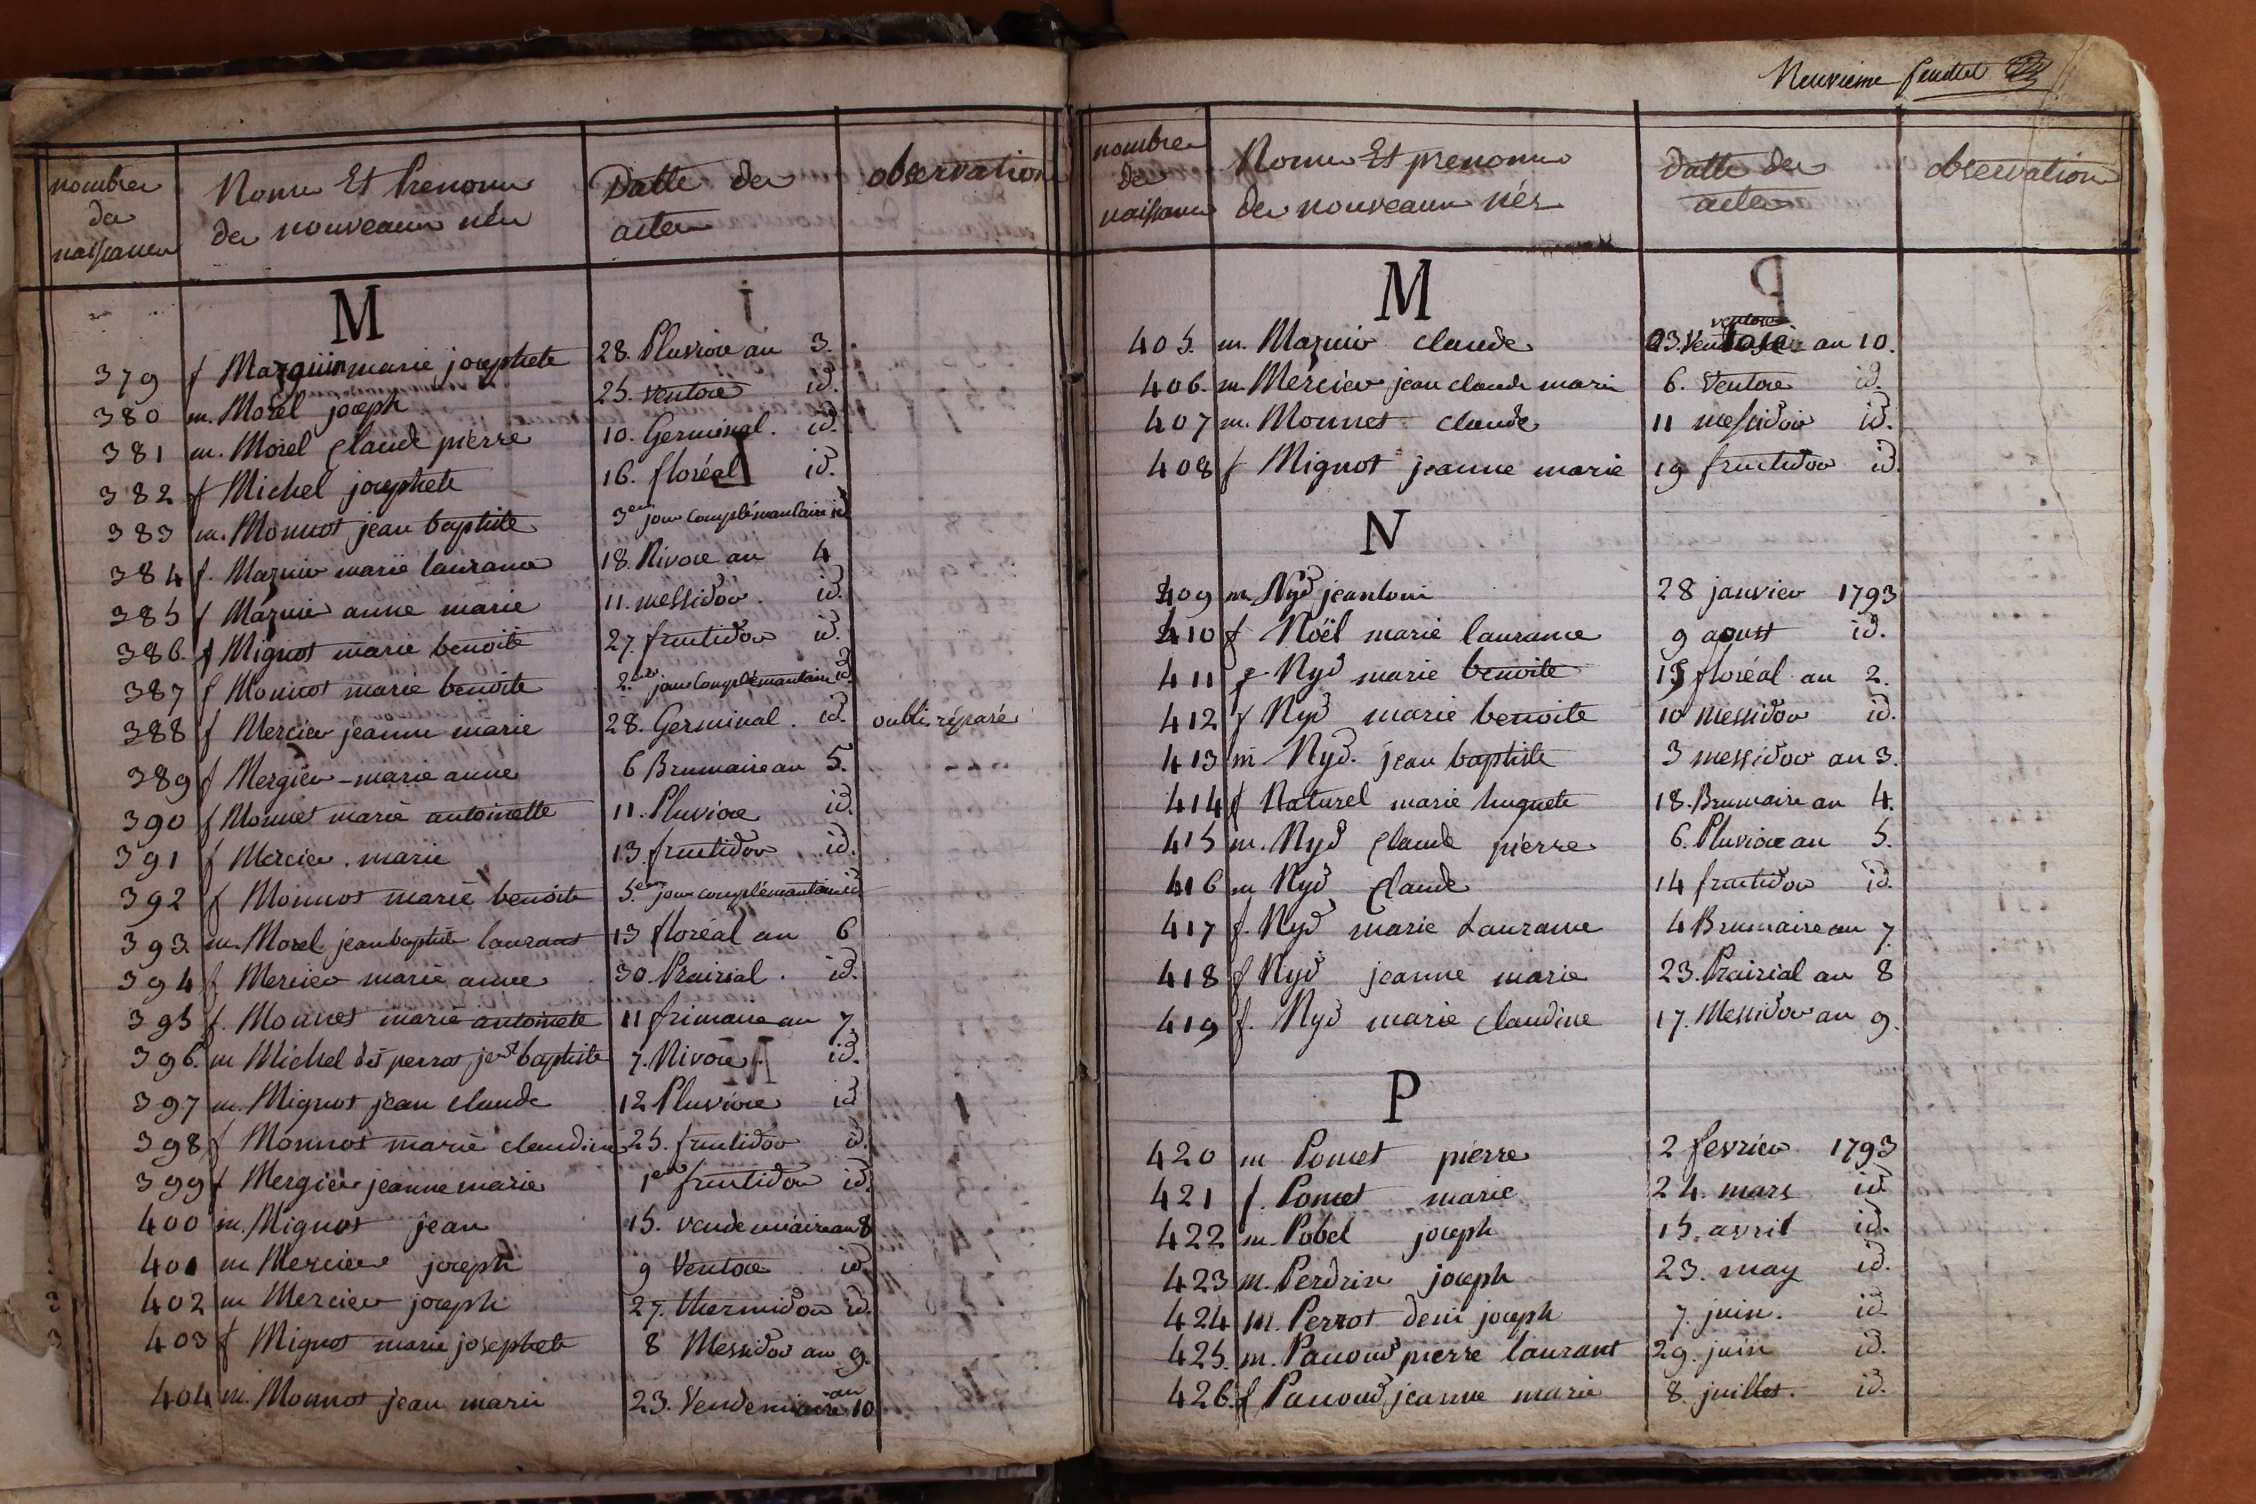 nombre
de
naissance
Noms Et Prenoms
de nouveaux nés
Datte de
actes
observation
M
379 f Mazuin marie josephete 28. Pluviose an 3.
380 m. Morel joseph 25. ventose id.
381 m. Morel claude pierre 10. Germinal. id.
382 f Michel josephete 16. floréal id.
383 m. Monnot jean baptiste 3em jour complémantaire id
384 f. Mazuir marie laurance 18. Nivose an 4
385 f Mazuir anne marie 11. messidor. id.
386. f Mignot marie benoite 27. fructidor id.
387 f Monnot marie benoite 2em jour complémantaire id
388 f Mercier jeanne marie 28. Germinal. id. oubli réparé
389 f Mergier marie anne 6 Brumaire an 5.
390 f Monnet marie antoinette 11. Pluviose id.
391 f Mercier. marie 13. fructidor id.
392 f Monnot marie benoite 5em jour complémantaire id
393. m. Morel jean baptiste laurant 13 floréal an 6
394 f Mercier marie anne 30. Prairial. id.
395 f. Monnet marie antoinete 11 frimaire an 7
396. m Michel dit perrot jean baptiste 7. Nivose. id.
397 m. Mignot jean claude 12 Pluviose id
398 f Monnot marie claudine 25. fructidor id.
399 f Mergier jeanne marie 1er fructidor id.
400 m. Mignot jean 15. vendemiaire an 8
401 m Mercier joseph 9 Ventose id
402 m Mercier joseph 27. thermidor id.
403 f Mignot marie josephete 8 Messidor an 9.
404 m. Monnot jean marie 23. Vendemiaire an 10
Neuvieme feuillet
nombre
de
naissance
Noms Et prenoms
de nouveaux nés
datte de
actes
observation
M
405. m. Mazuir claude 23. Ventose an 10.
406. m. Mercier jean claude marie 6. Ventose id.
407 m. Monnet claude 11 messidor id.
408 f Mignot jeanne marie 19 fructidor id.
N
409 m. Nyd jean louis 28 janvier 1793
410 f Noël marie laurance 9 aoust id.
411 f Nyd marie benoite 15 floréal an 2.
412 f Nyd marie benoite 10 Messidor id.
413 m Nyd. jean baptiste 3 messidor an 3.
414 f Naturel marie huguete 18. Brumaire an 4.
415 m. Nyd claude pierre 6. Pluviose an 5.
416 m Nyd claude 14 fructidor id.
417 f. Nyd marie Laurance 4 Brumaire an 7.
418 f Nyd jeanne marie 23. Prairial an 8
419 f. Nyd marie claudine 17. Messidor an 9.
P
420 m Pomet pierre 2 fevrier 1793
421 f. Pomet marie 24. mars id
422 m. Pobel joseph 15. avril id.
423 m. Perdrix joseph 23. may id.
424 m. Perrot denis joseph 7. juin. id
425. m. Panoud pierre laurant 29. juin id.
426. f Panoud jeanne marie 8. juillet. id.